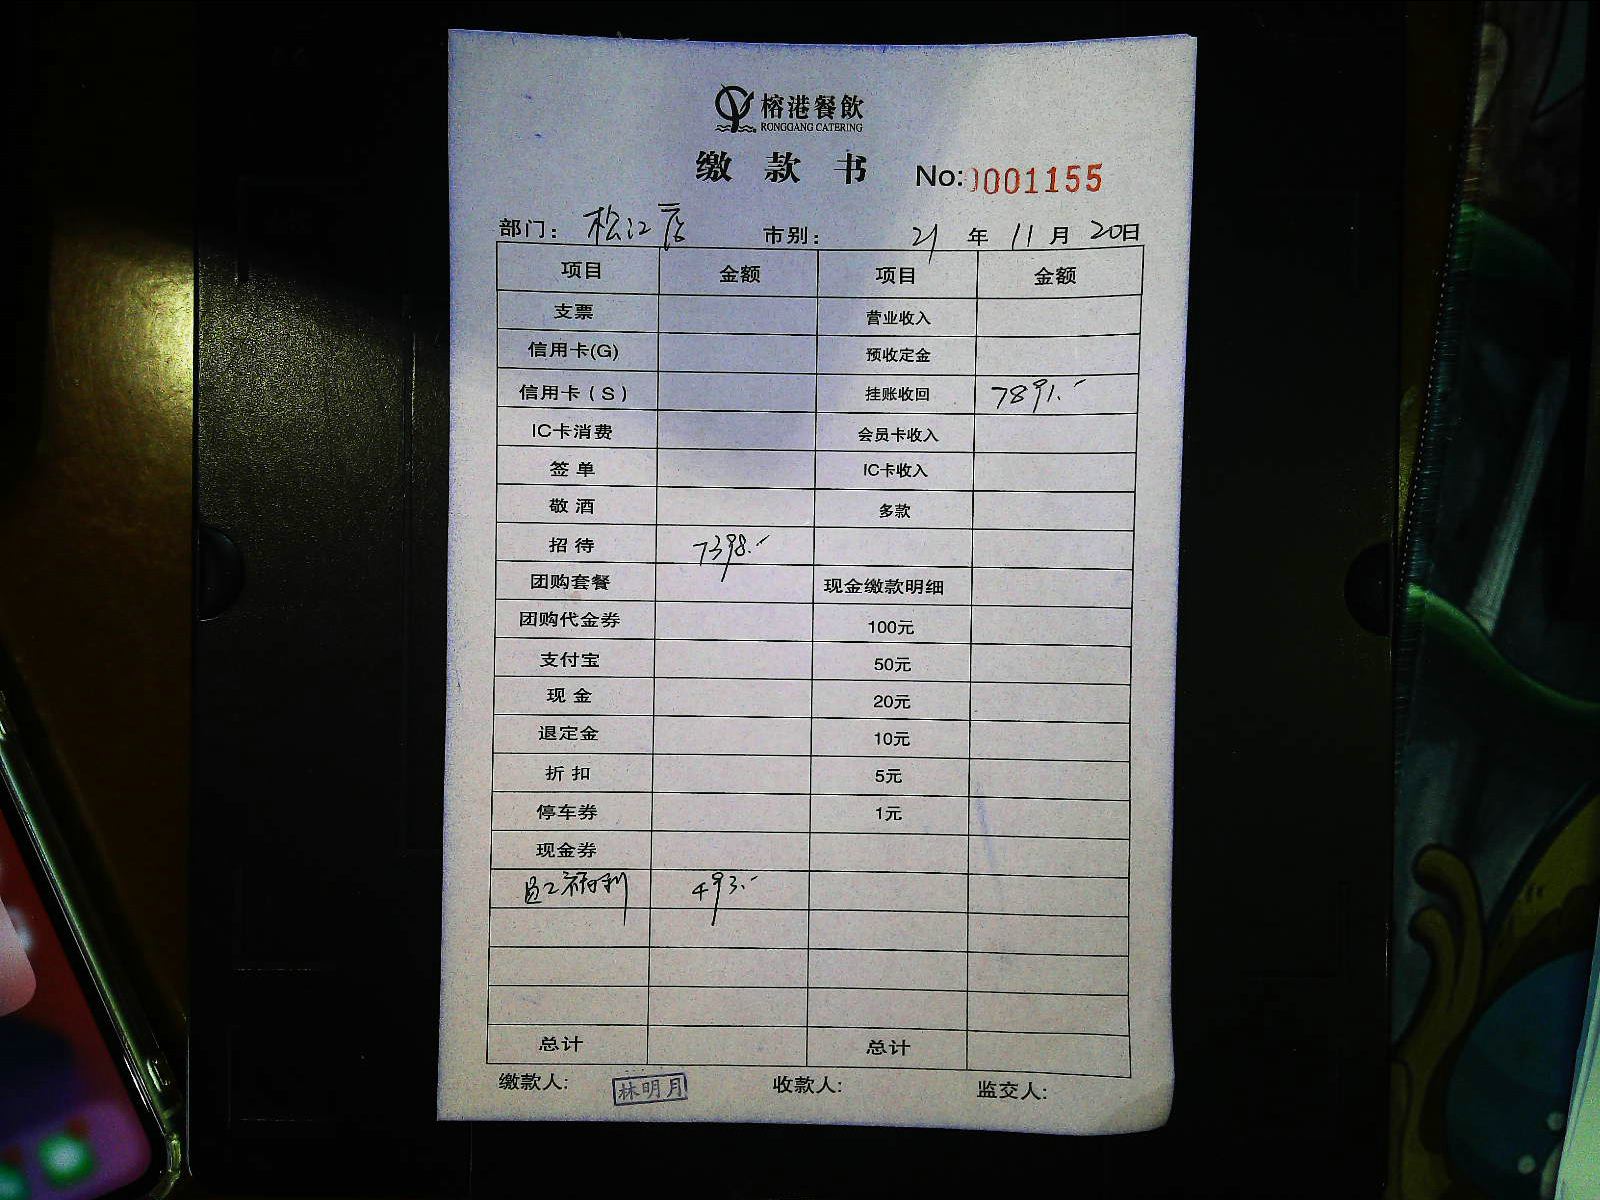 榕港餐飲
RONGGANG CATERING
缴 款 书 No:0001155
部门： 松江店 市别： 21 年 11 月 20日
项目 金额 项目 金额
支票 营业收入
信用卡(G) 预收定金
信用卡（S） 挂账收回 7891.-
IC卡消费 会员卡收入
签 单 IC卡收入
敬 酒 多款
招 待 7398.-
团购套餐 现金缴款明细
团购代金券 100元
支付宝 50元
现 金 20元
退定金 10元
折 扣 5元
停车券 1元
现金券
员工福利 493.-
总计 总计
缴款人: 林明月 收款人: 监交人: